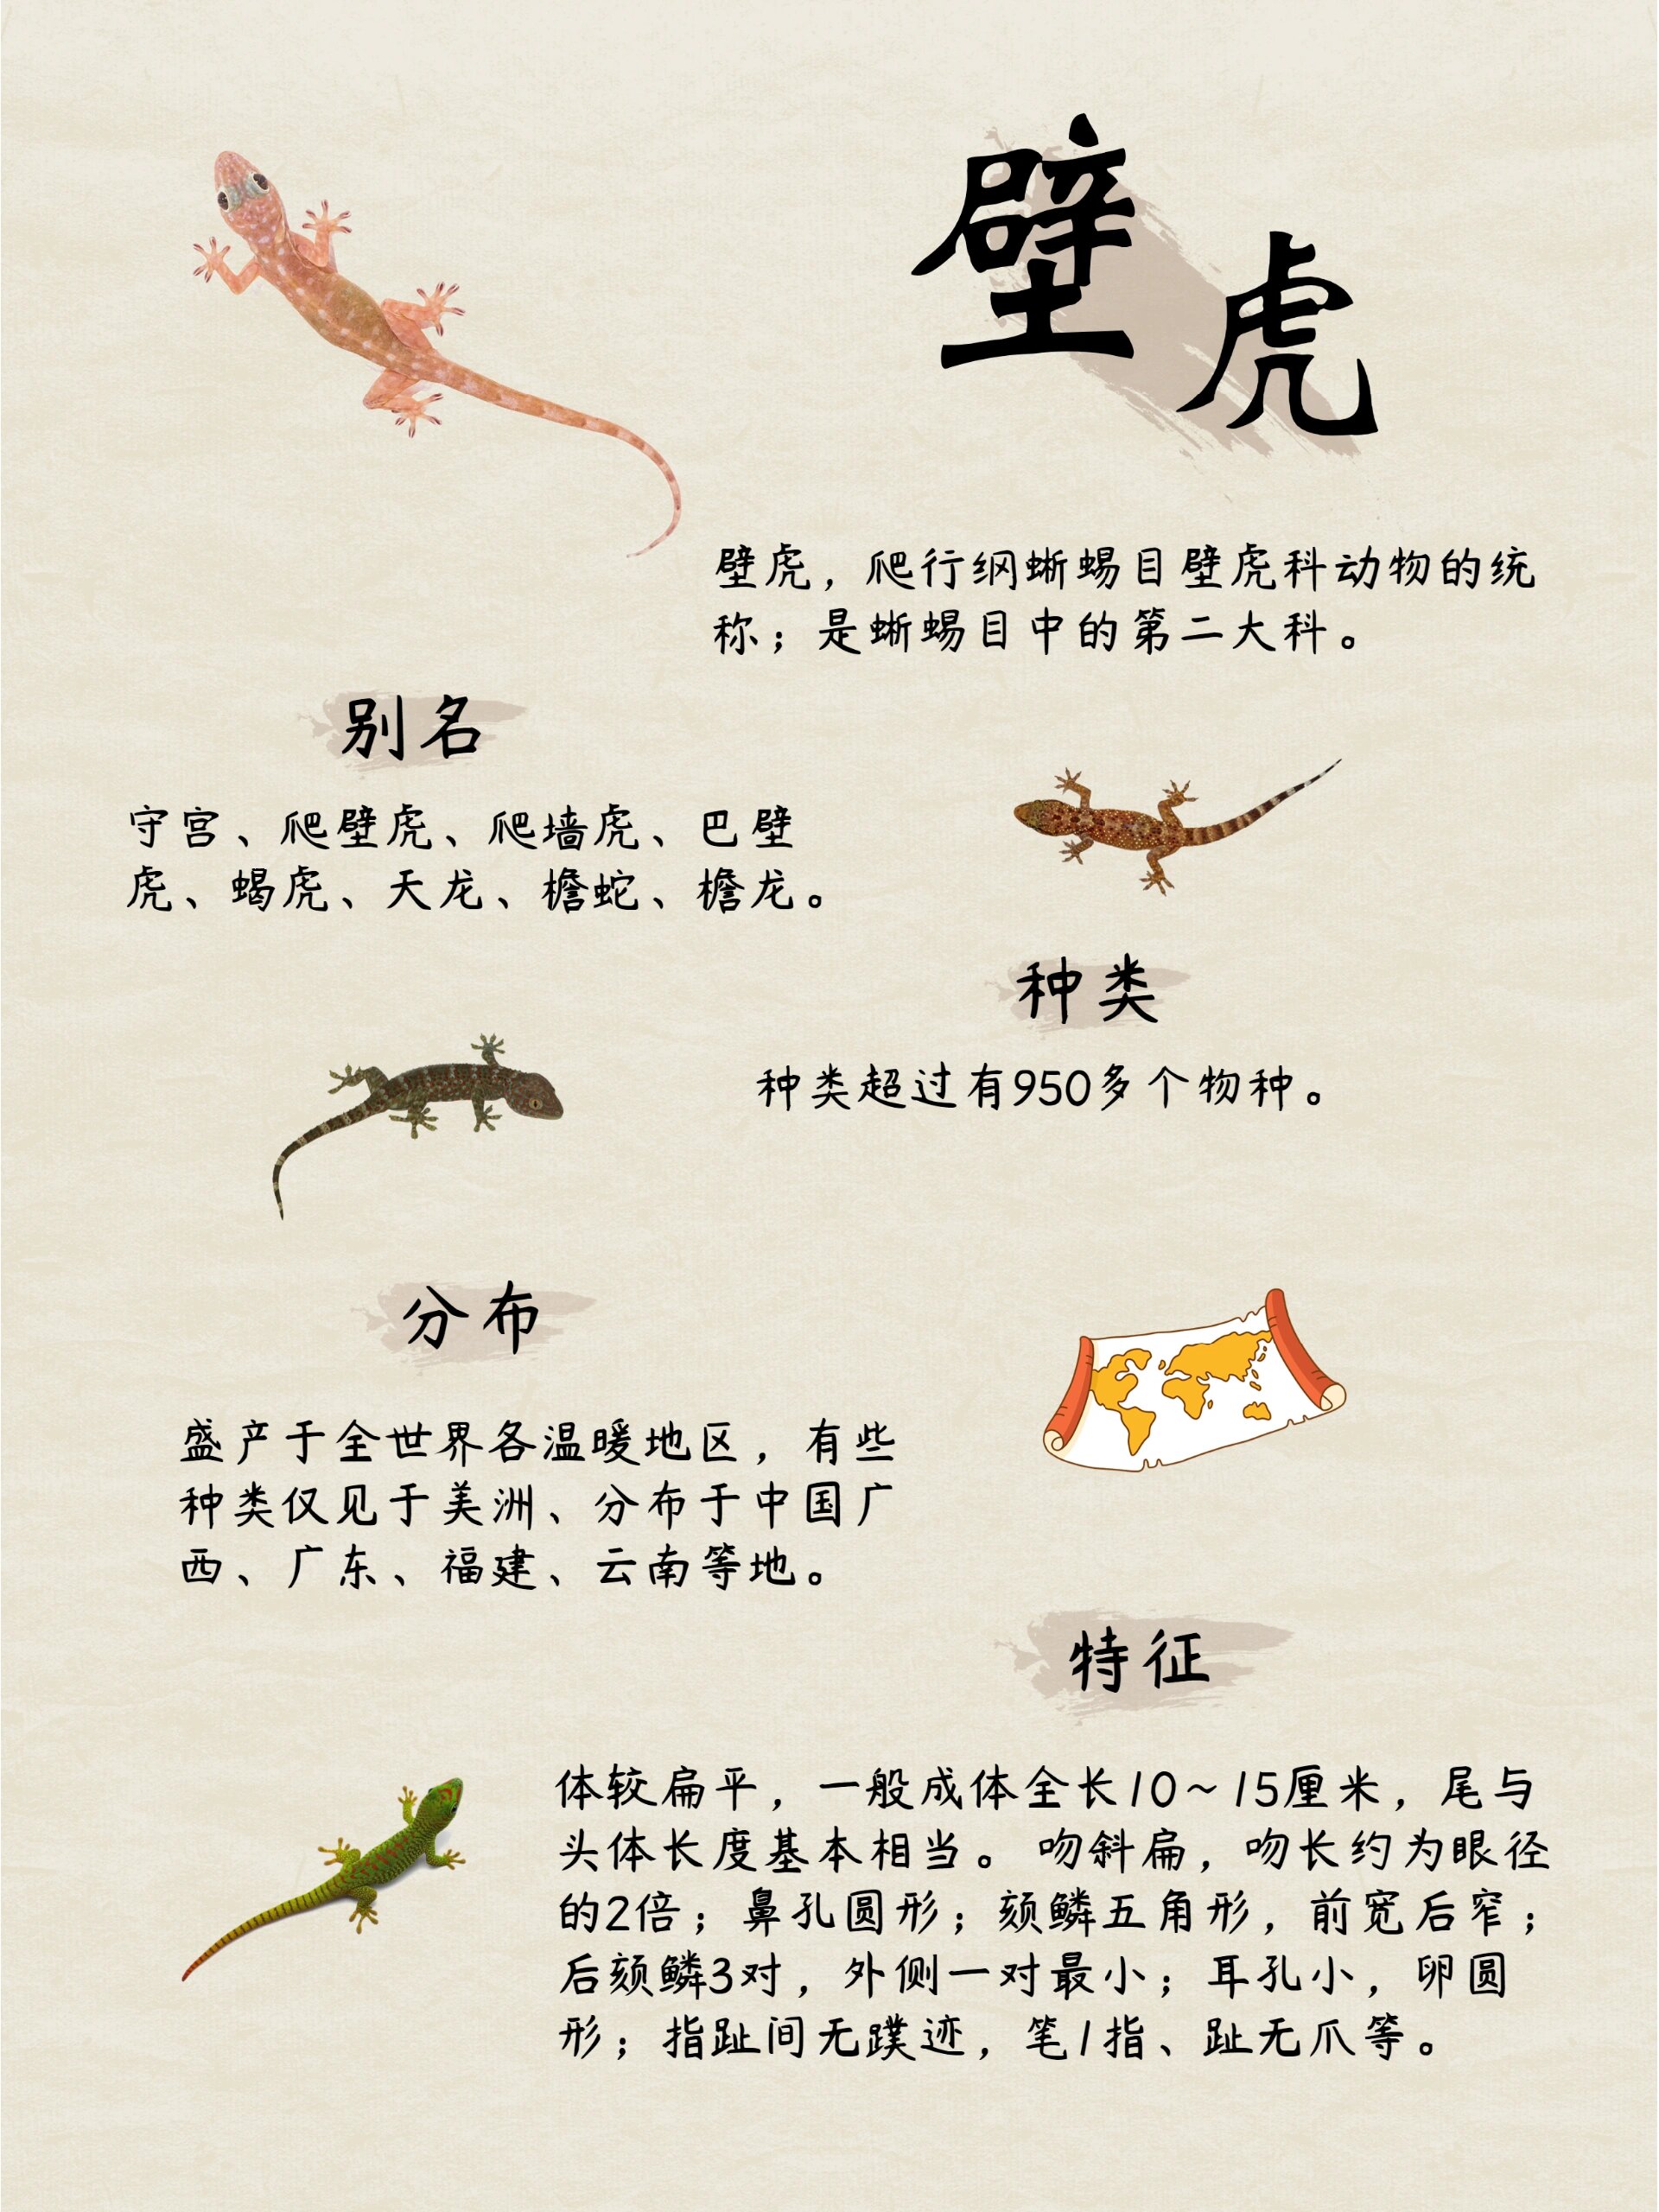 壁虎
壁虎，爬行纲蜥蜴目壁虎科动物的统
称；是蜥蜴目中的第二大科。
别名
守宫、爬壁虎、爬墙虎、巴壁
虎、蝎虎、天龙、檐蛇、檐龙。
种类
种类超过有950多个物种。
分布
盛产于全世界各温暖地区，有些
种类仅见于美洲、分布于中国广
西、广东、福建、云南等地。
特征
体较扁平，一般成体全长10~15厘米，尾与
头体长度基本相当。吻斜扁，吻长约为眼径
的2倍；鼻孔圆形；颏鳞五角形，前宽后窄；
后颏鳞3对，外侧一对最小；耳孔小，卵圆
形；指趾间无蹼迹，笔1指、趾无爪等。